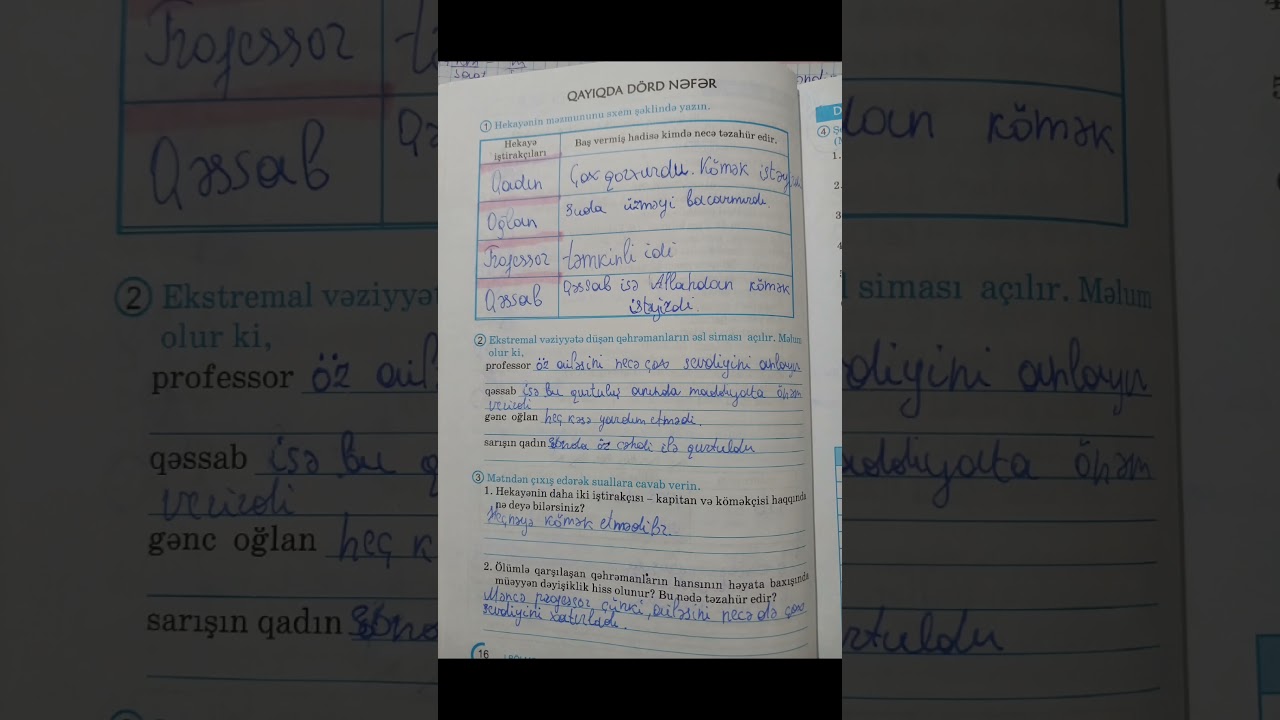 QAYIQDA DÖRD NƏFƏR
1 Hekayənin məzmununu sxem şəklində yazın.
Hekayə iştirakçıları
Baş vermiş hadisə kimdə necə təzahür edir.
Qadın
Çox qorxurdu. Kömək istəyirdi
Oğlan
Suda üzməyi bacarmırdı.
Professor
təmkinli idi
Qəssab
Qəssab isə Allahdan kömək
istəyirdi.
2 Ekstremal vəziyyətə düşən qəhrəmanların əsl siması açılır. Məlum
olur ki,
professor öz ailəsini necə çox sevdiyini anlayır
qəssab isə bu qurtuluş anında maddiyata önəm
verirdi
gənc oğlan heç kəsə yardım etmədi.
sarışın qadın sonda öz cəhdi ilə qurtuldu
3 Mətndən çıxış edərək suallara cavab verin.
1. Hekayənin daha iki iştirakçısı – kapitan və köməkçisi haqqında
nə deyə bilərsiniz?
Heçnəyə kömək etmədilər.
2. Ölümlə qarşılaşan qəhrəmanların hansının həyata baxışında
müəyyən dəyişiklik hiss olunur? Bu nədə təzahür edir?
Məncə professor çünki, ailəsini necə də çox
sevdiyini xatırladı.
16